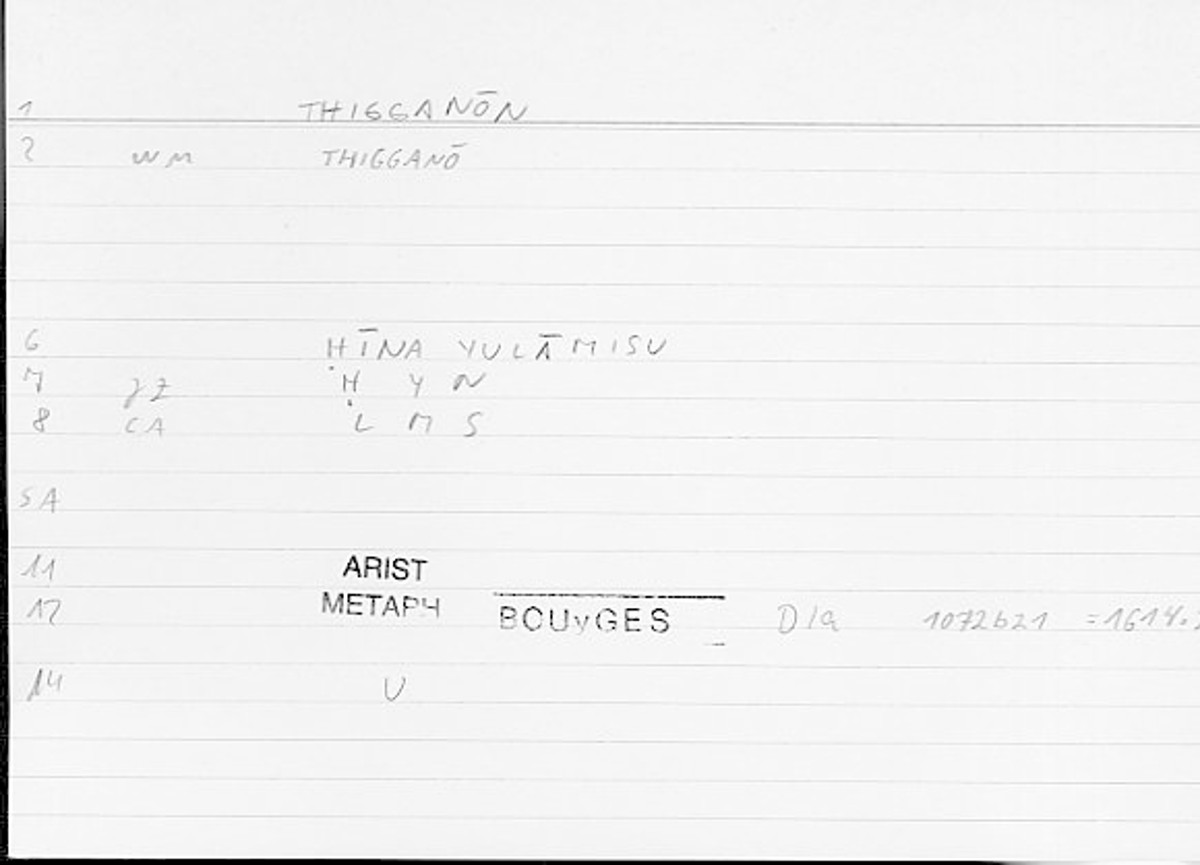 1 THIGGANŌN
2 wm THIGGANŌ
6 ḤĪNA YULĀMISU
7 Ḥ Y N
8 CA L M S
SA
11 ARIST
12 METAPH BOUyGES 1072b21 =1614.
14 U